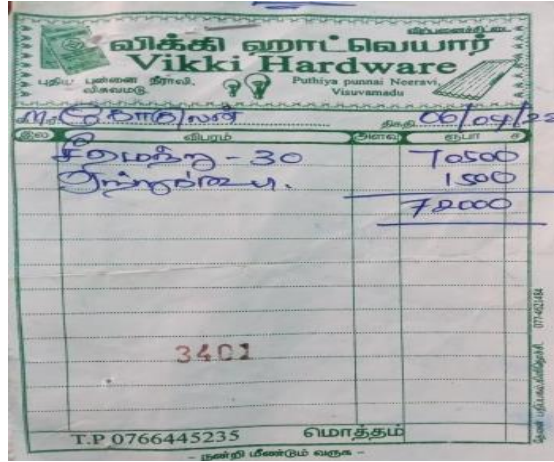 விற்பனைச்சிட்டை
விக்கி ஹாட்வெயார்
Vikki Hardware
புதிய புன்னை நீராவி,
விசுவமடு.
Puthiya punnai Neeravi,
Visuvamadu
திகதி 06/04/22
இல விபரம் அளவு ரூபா ச
சீமெந்து - 30 70500
ஏற்றுக்கூலி. 1500
72000
3401
T.P 0766445235 மொத்தம்
- நன்றி மீண்டும் வருக -
077-4621484